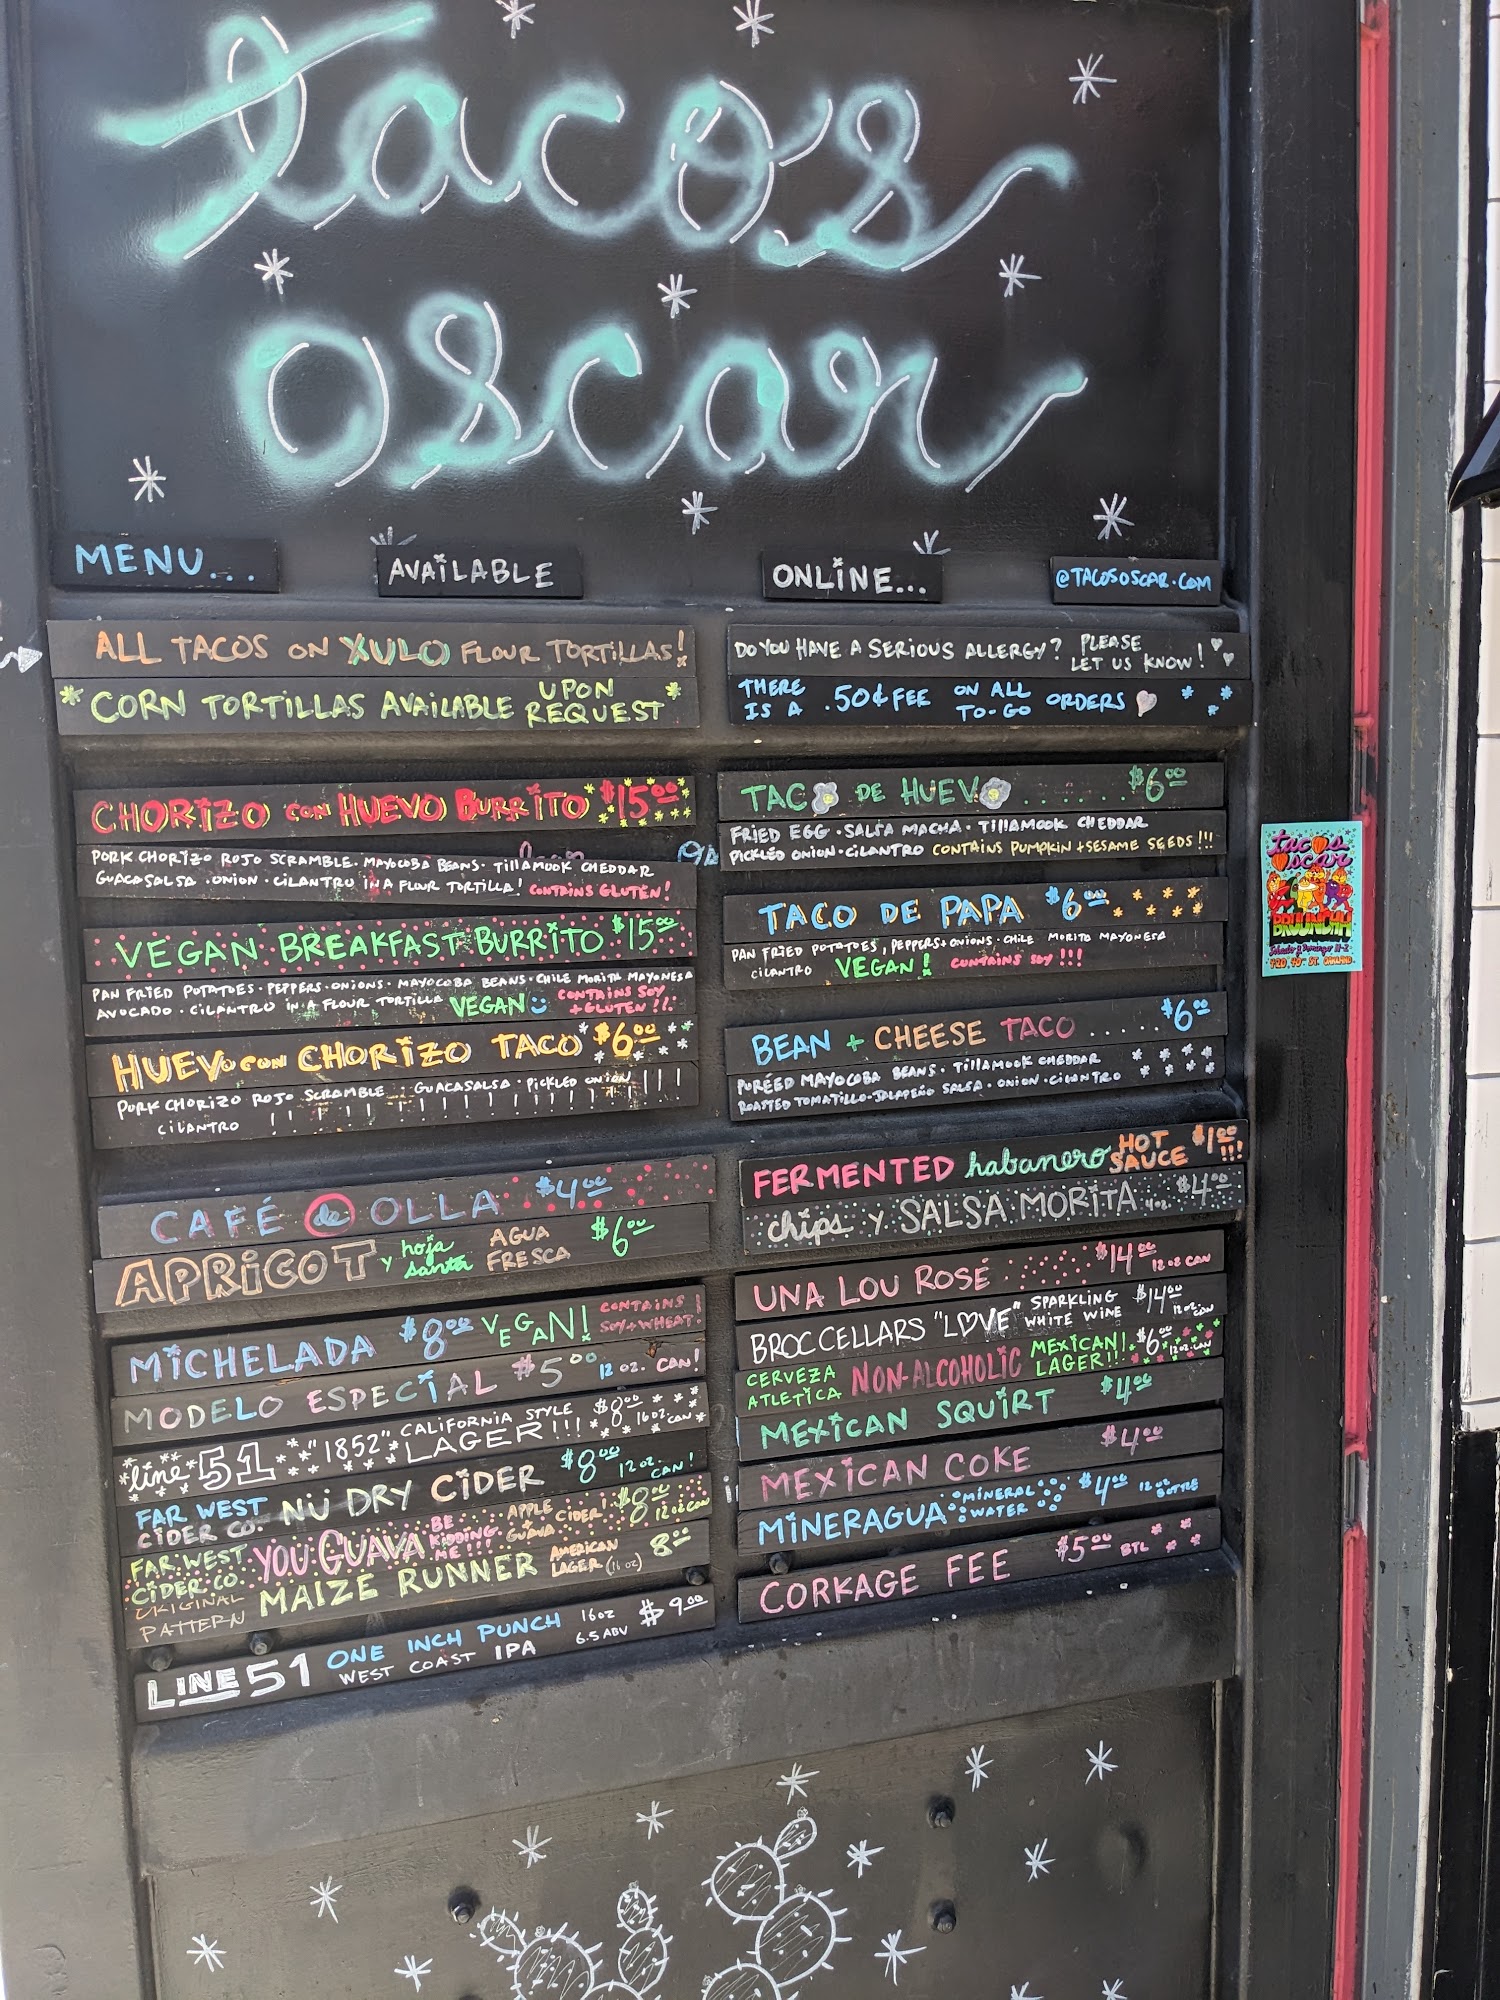 tacos
oscar
MENU...
AVAILABLE
ONLINE...
@TACOSOSCAR.COM
ALL TACOS ON XULO FLOUR TORTILLAS!
*CORN TORTILLAS AVAILABLE UPON REQUEST*
DO YOU HAVE A SERIOUS ALLERGY? PLEASE LET US KNOW!
THERE IS A .50¢ FEE ON ALL TO-GO ORDERS
CHORIZO CON HUEVO BURRITO $15.00
PORK CHORIZO ROJO SCRAMBLE · MAYOCOBA BEANS · TILLAMOOK CHEDDAR
GUACASALSA · ONION · CILANTRO IN A FLOUR TORTILLA! CONTAINS GLUTEN!
VEGAN BREAKFAST BURRITO $15.00
PAN FRIED POTATOES · PEPPERS · ONIONS · MAYOCOBA BEANS · CHILE MORITA MAYONESA
AVOCADO · CILANTRO IN A FLOUR TORTILLA VEGAN CONTAINS SOY + GLUTEN!!
HUEVO CON CHORIZO TACO $6.00
PORK CHORIZO ROJO SCRAMBLE · GUACASALSA · PICKLED ONION
CILANTRO
TACO DE HUEVO ...... $6.00
FRIED EGG · SALSA MACHA · TILLAMOOK CHEDDAR
PICKLED ONION · CILANTRO CONTAINS PUMPKIN + SESAME SEEDS!!!
TACO DE PAPA $6.00
PAN FRIED POTATOES, PEPPERS + ONIONS · CHILE MORITA MAYONESA
CILANTRO VEGAN! CONTAINS SOY!!!
BEAN + CHEESE TACO ..... $6.00
PURÉED MAYOCOBA BEANS · TILLAMOOK CHEDDAR
ROASTED TOMATILLO-JALAPEÑO SALSA · ONION · CILANTRO
FERMENTED habanero HOT SAUCE $1.00 !!!
chips y SALSA MORITA 4oz. $4.00
CAFÉ de OLLA $4.00
APRICOT y hoja santa AGUA FRESCA $6.00
MICHELADA $8.00 VEGAN! CONTAINS SOY + WHEAT!
MODELO ESPECIAL $5.00 12 OZ. CAN!
line 51 "1852" CALIFORNIA STYLE LAGER!!! $8.00 16 OZ CAN
FAR WEST CIDER CO. NÜ DRY CIDER $8.00 12 OZ. CAN!
FAR WEST CIDER CO. YOU GUAVA BE KIDDING ME!!! APPLE GUAVA CIDER! $8.00 12 OZ CAN
ORIGINAL PATTERN MAIZE RUNNER AMERICAN LAGER (16 oz) 8.00
LINE 51 ONE INCH PUNCH WEST COAST IPA 16oz 6.5 ABV $9.00
UNA LOU ROSÉ $14.00 12 OZ CAN
BROC CELLARS "LOVE" SPARKLING WHITE WINE $14.00 12 OZ CAN
CERVEZA ATLETICA NON-ALCOHOLIC MEXICAN LAGER!!! $6.00 12 OZ. CAN
MEXICAN SQUIRT $4.00
MEXICAN COKE $4.00
MINERAGUA MINERAL WATER $4.00 12 OZ BOTTLE
CORKAGE FEE $5.00 BTL
tacos
oscar
BRUUNCH!